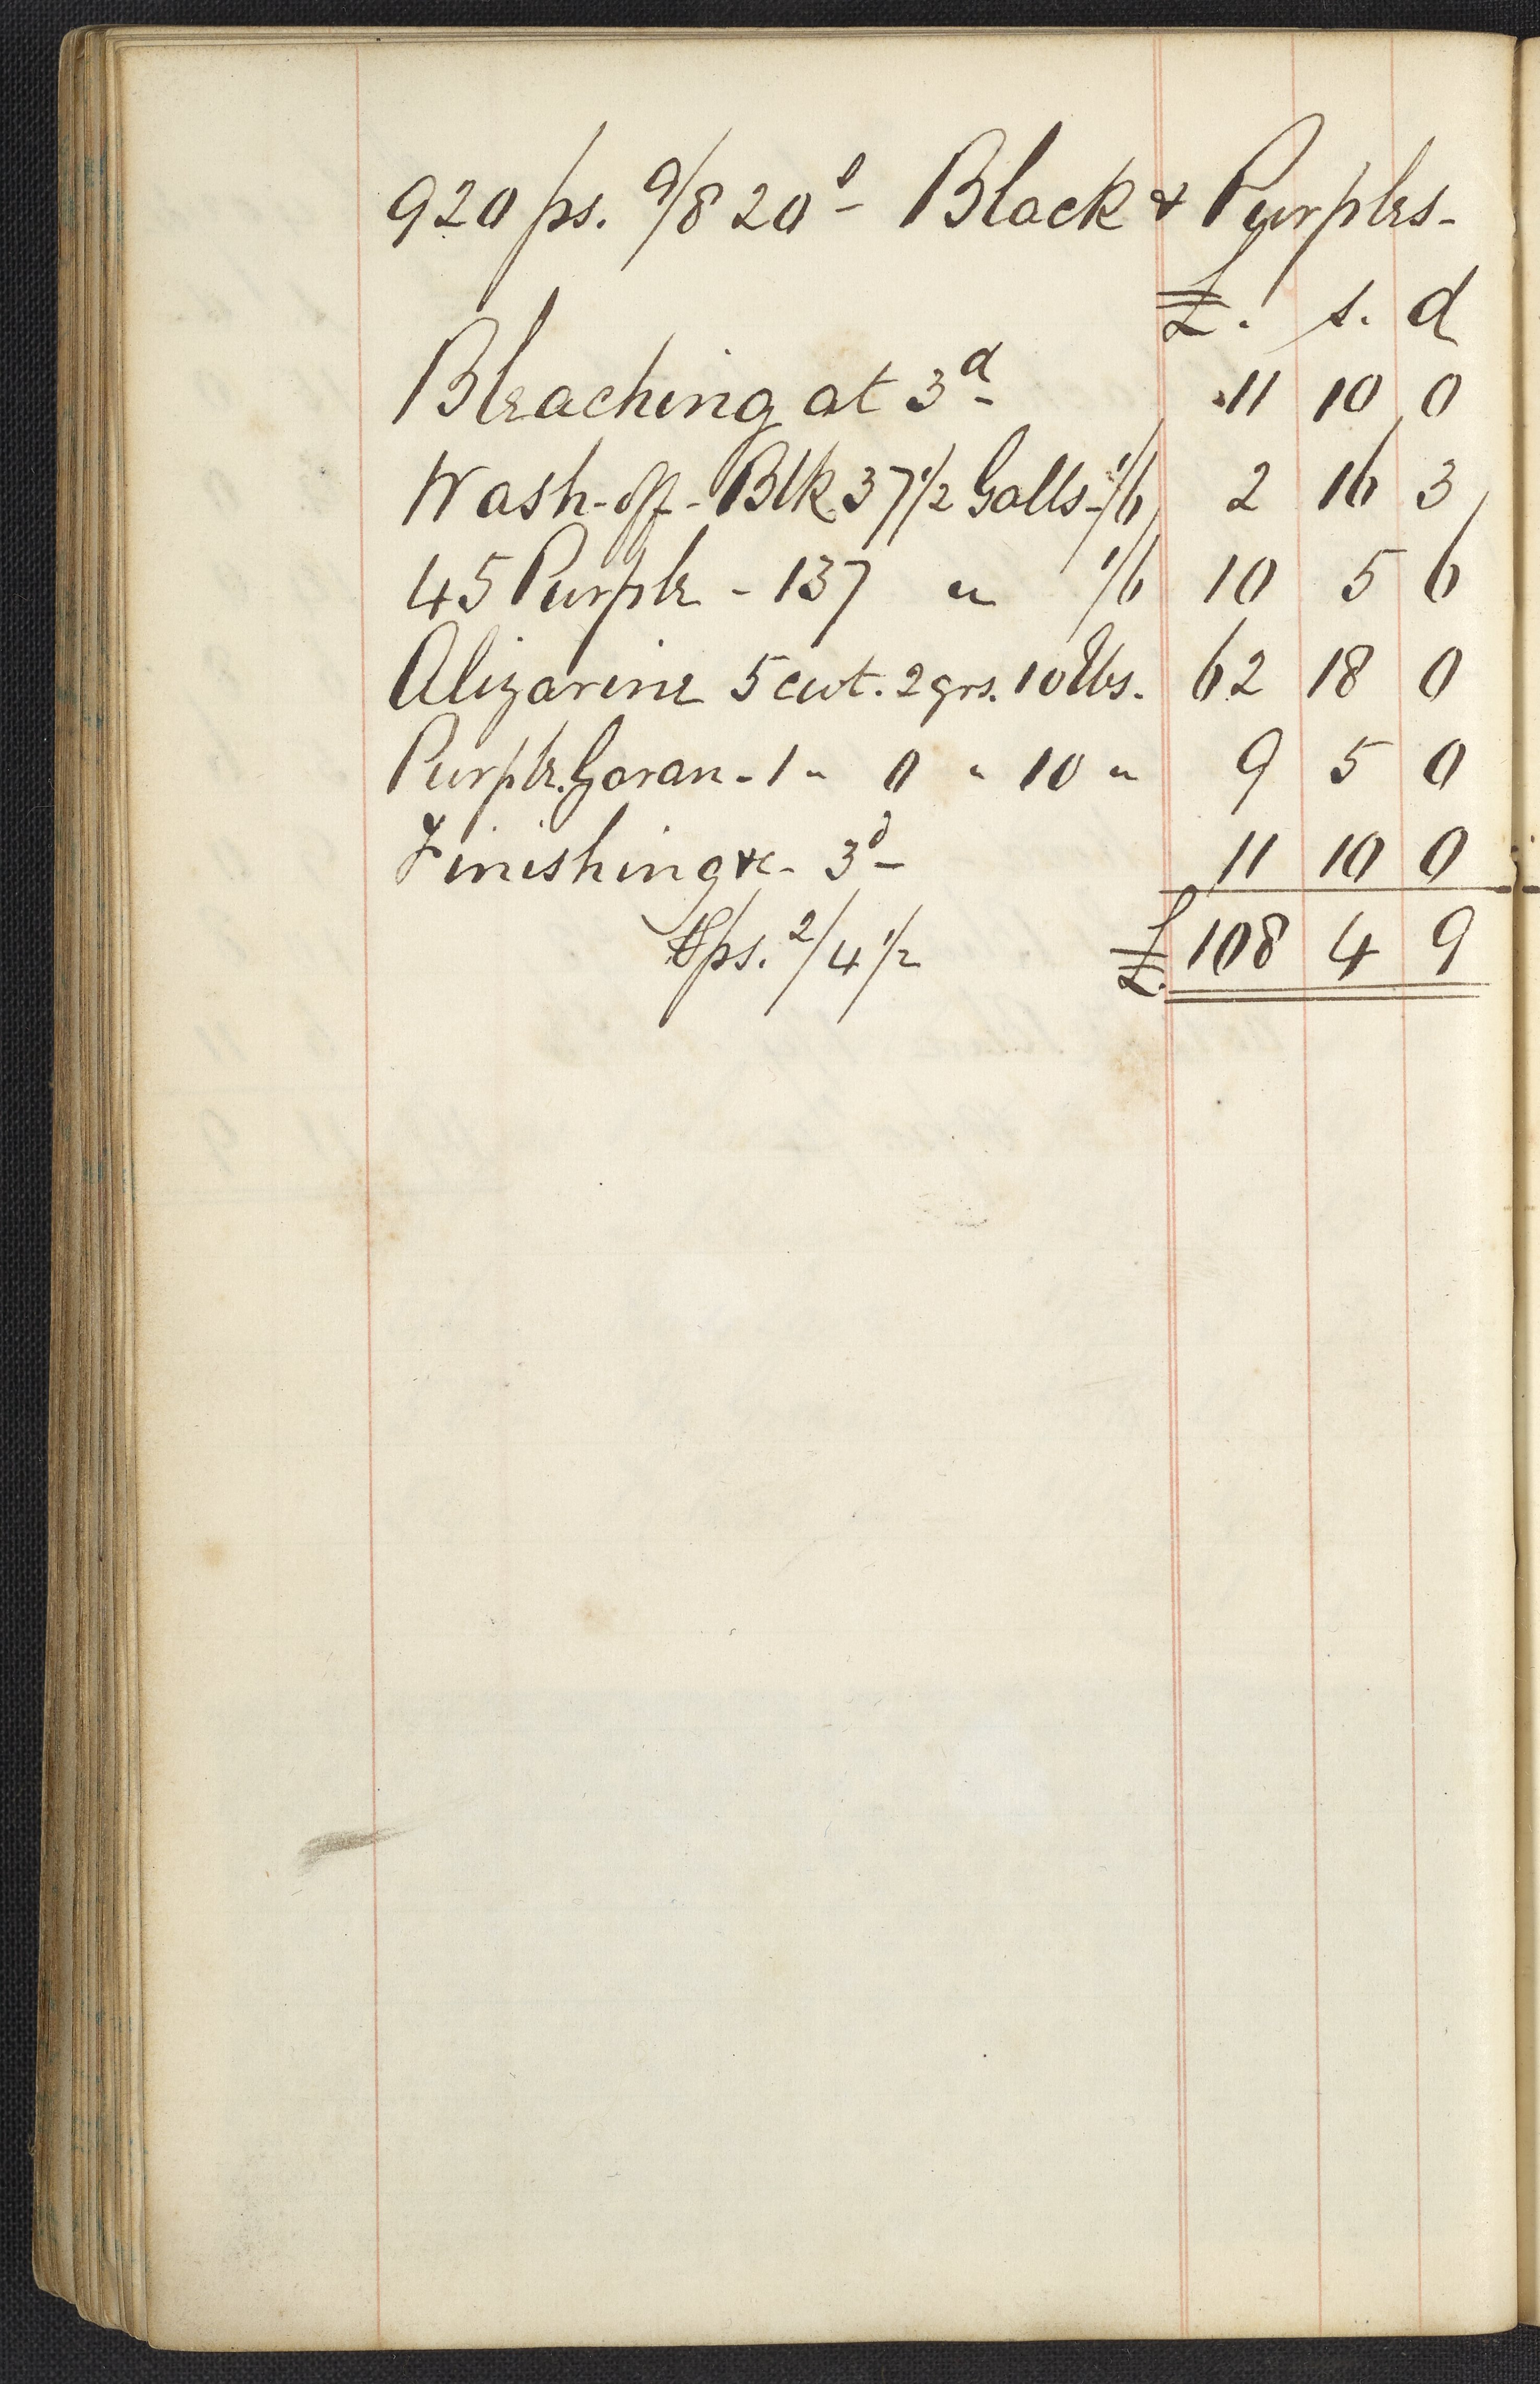 920 ps. 9/8 20s- Black & Purples-
£. s. d
Bleaching at 3d- 11 10 0
Wash-off-Blk 37 1/2 Galls-1/6 2 16 3
45 Purple - 137 " 1/6 10 5 6
Alizarine 5 cwt. 2 qrs. 10 lbs. 62 18 0
Purple. Garan - 1 " 0 " 10 " 9 5 0
Finishing &c - 3d- 11 10 0
ps. 2/4 1/2 £ 108 4 9